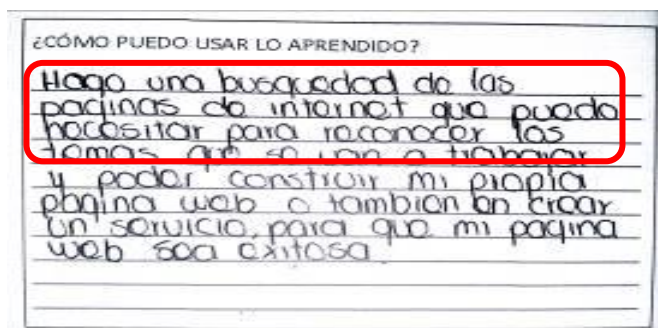 ¿CÓMO PUEDO USAR LO APRENDIDO?
Hago una busquedad de las
paginas de internet que pueda
necesitar para reconocer los
temas que se van a trabajar
y poder construir mi propia
pagina web o tambien en crear
un servicio, para que mi pagina
web sea exitosa